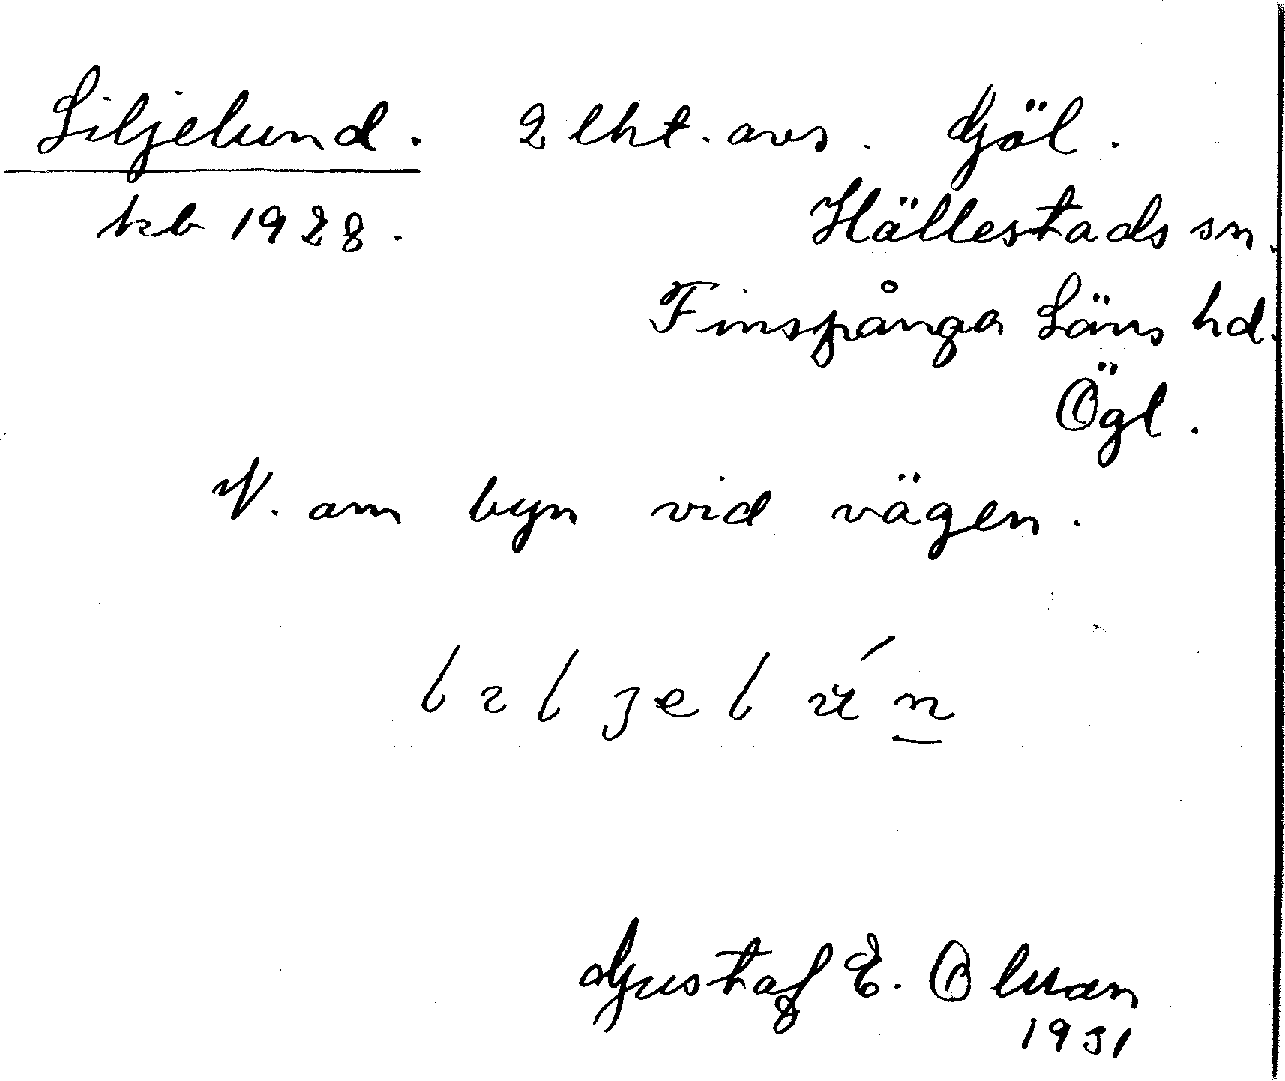 Liljelund. 2 lht. avs. Göl.
kb 1928. Hällestads sn.
Finspånga Läns hd.
Ögl.
N. om byn vid vägen.
lɪljelún̲
Gustaf E. Olsson
1931